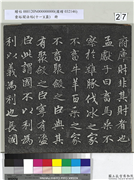 27
府庫財非其財者也
孟獻子曰畜馬乘不
察於雞豚伐冰之家
不畜牛羊百乘之家
不畜聚斂之臣與其
有聚斂之臣寧有盜
臣此謂國不以利為
利以義為利也長國